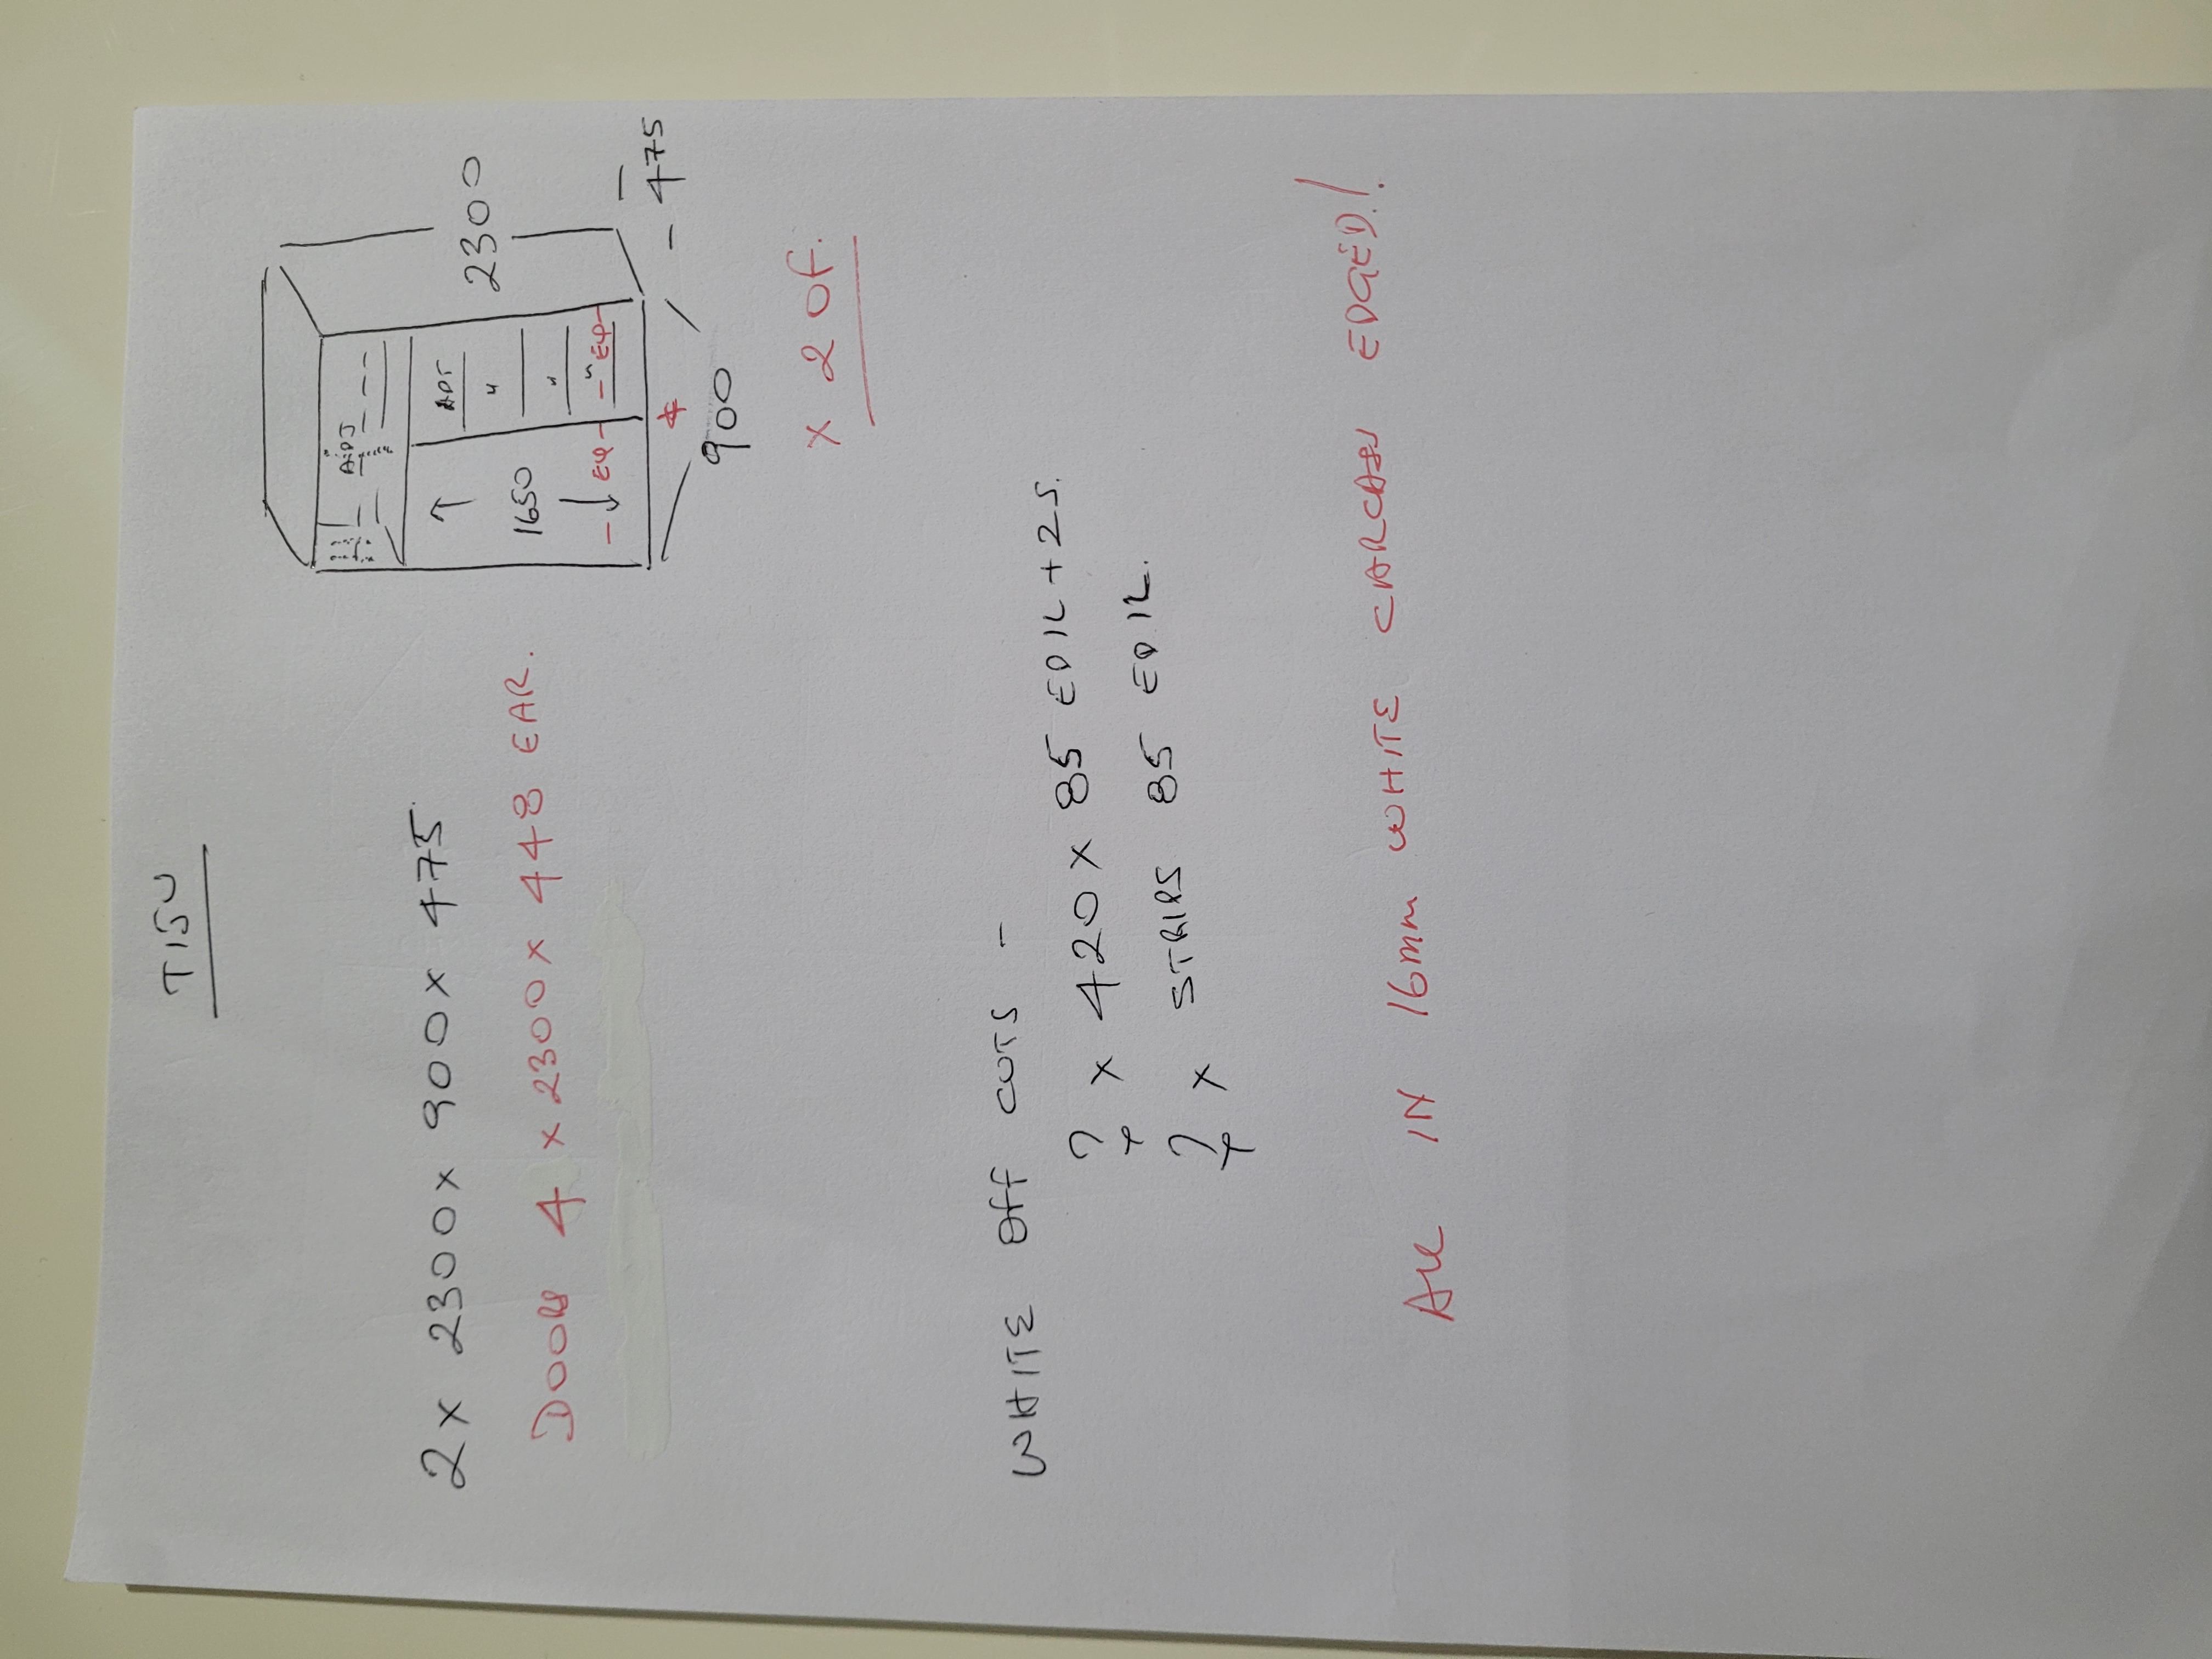 TISU
2x 2300 x 900 x 475
DOORS 4 x 2300 x 448 EAR.
2300
475
ADJ
ADJ
"
"
"
1650
EQ
EQ
*
900
x 2 OF.
WHITE OFF CUTS -
? x 420 x 85 ED 1L + 2S.
? x STRIPS 85 ED 1L.
ALL IN 16mm WHITE CARCASS EDGED!